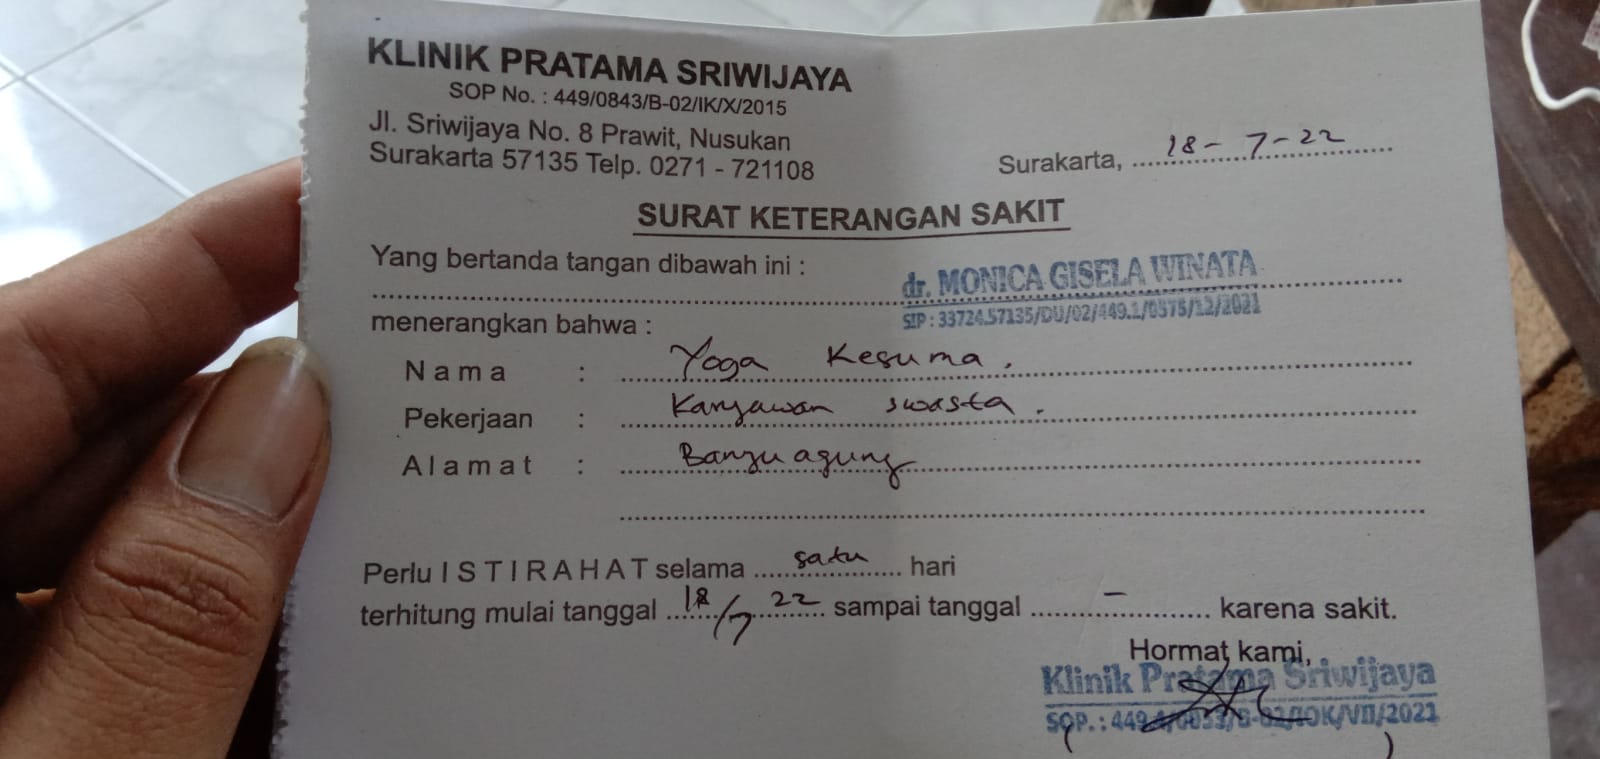 KLINIK PRATAMA SRIWIJAYA
SOP No. : 449/0843/B-02/IK/X/2015
Jl. Sriwijaya No. 8 Prawit, Nusukan
Surakarta 57135 Telp. 0271 - 721108
Surakarta, 18 - 7 - 22
SURAT KETERANGAN SAKIT
Yang bertanda tangan dibawah ini :
dr. MONICA GISELA WINATA
SIP : 33724.57135/DU/02/449.1/0575/12/2021
menerangkan bahwa :
Nama : Yoga Kesuma.
Pekerjaan : Karyawan swasta.
Alamat : Banyuagung
Perlu ISTIRAHAT selama satu hari
terhitung mulai tanggal 18/7 22 sampai tanggal - karena sakit.
Hormat kami,
Klinik Pratama Sriwijaya
SOP. : /VII/2021
( )